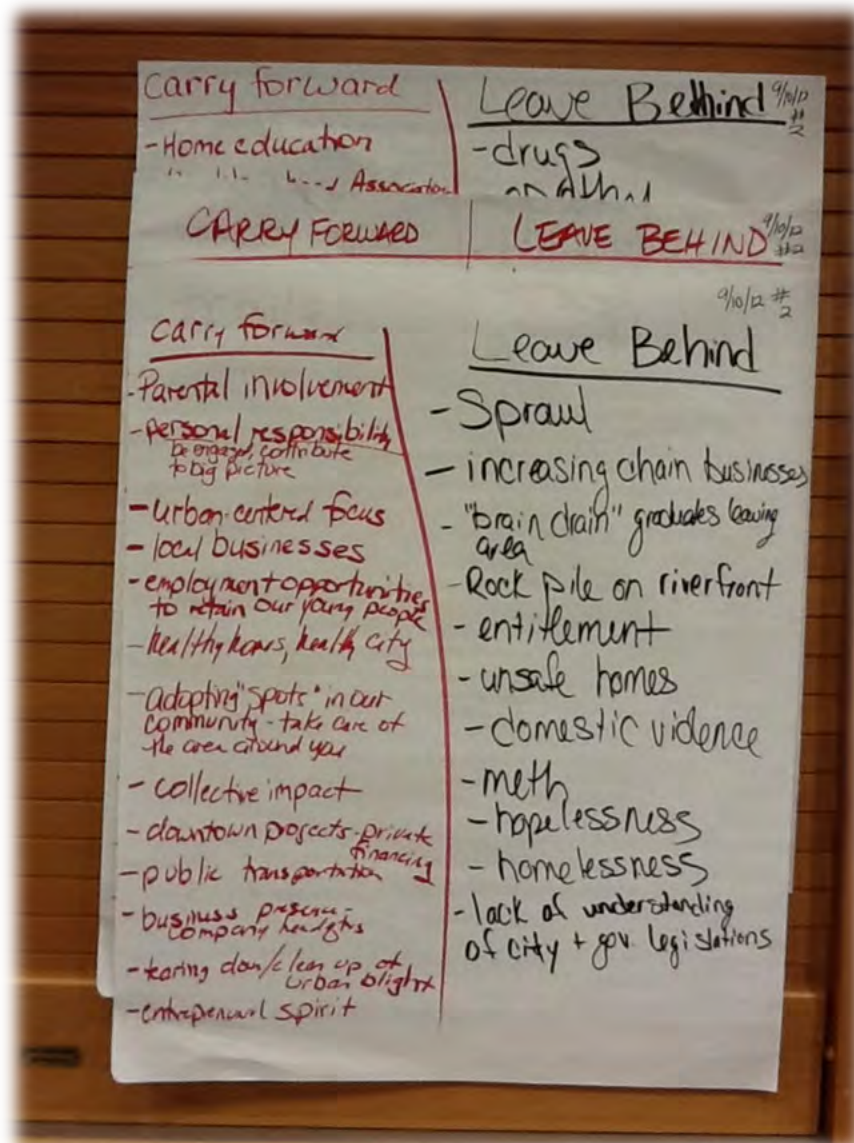 Carry forward
- Home education
Association
Leave Behind
9/10/12
#
2
- drugs
CARRY FORWARD
LEAVE BEHIND
9/10/12
#2
9/10/12 #
2
Carry forward
- Parental involvement
- personal responsibility
be engaged, contribute
to big picture
- urban-centered focus
- local businesses
- employment opportunities
to retain our young people
- healthy homes, healthy city
- adopting "spots" in our
community - take care of
the area around you
- collective impact
- downtown projects - private
financing
- public transportation
- business presence -
company headqtrs
- tearing down/clean up of
urban blight
- spirit
Leave Behind
- Sprawl
- increasing chain businesses
- "brain drain" graduates leaving
area
- Rock pile on riverfront
- entitlement
- unsafe homes
- domestic violence
- meth
- hopelessness
- homelessness
- lack of understanding
of city + gov. legislations